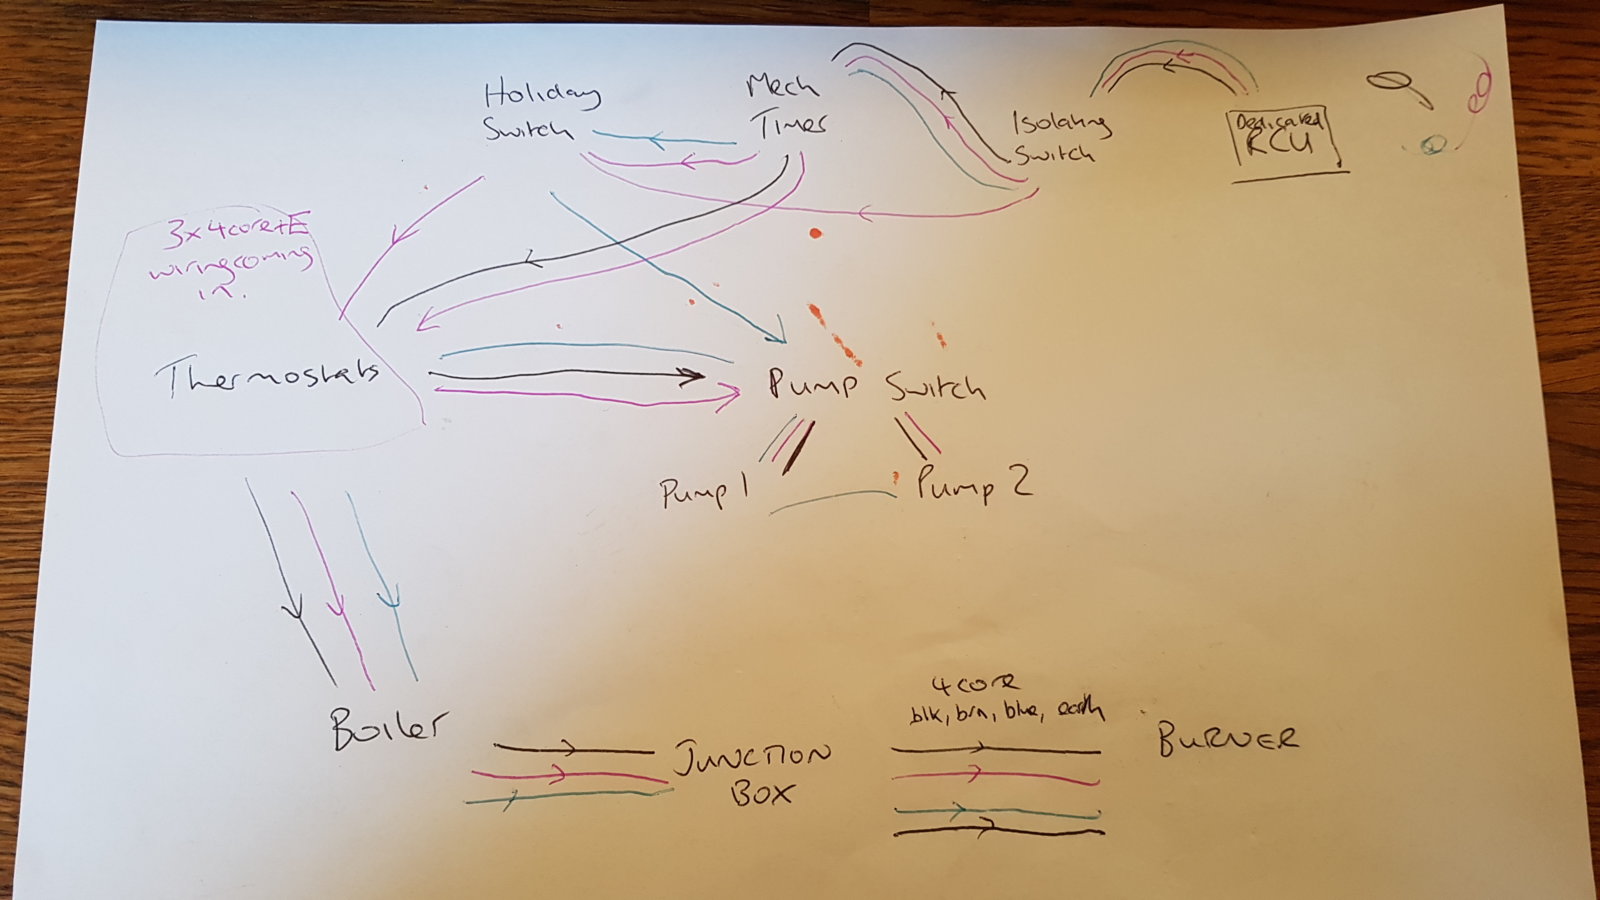 Holiday
Switch
Mech
Timer
Isolating
Switch
Dedicated
RCU
3x4core+E
wiring coming
in.
Thermostats
Pump Switch
Pump 1
Pump 2
Boiler
JUNCTION
BOX
4 core
blk, brn, blue, earth
BURNER